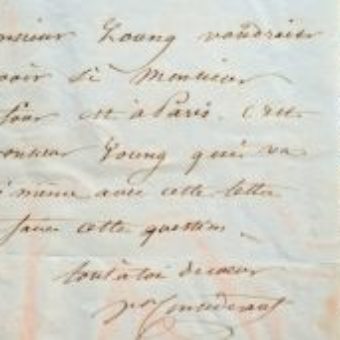 nsieur Young voudrait
avoir si Monsieur
est à Paris. C'est
onsieur Young qui va
même avec cette lettre
faire cette question.
tout à toi de cœur